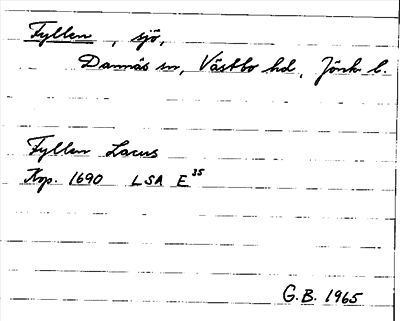 Fyllen, sjö,
Dannäs sn, Västbo hd, Jönk. l.
Fyllen Lacus
Kop. 1690 LSA E³⁵
G.B. 1965